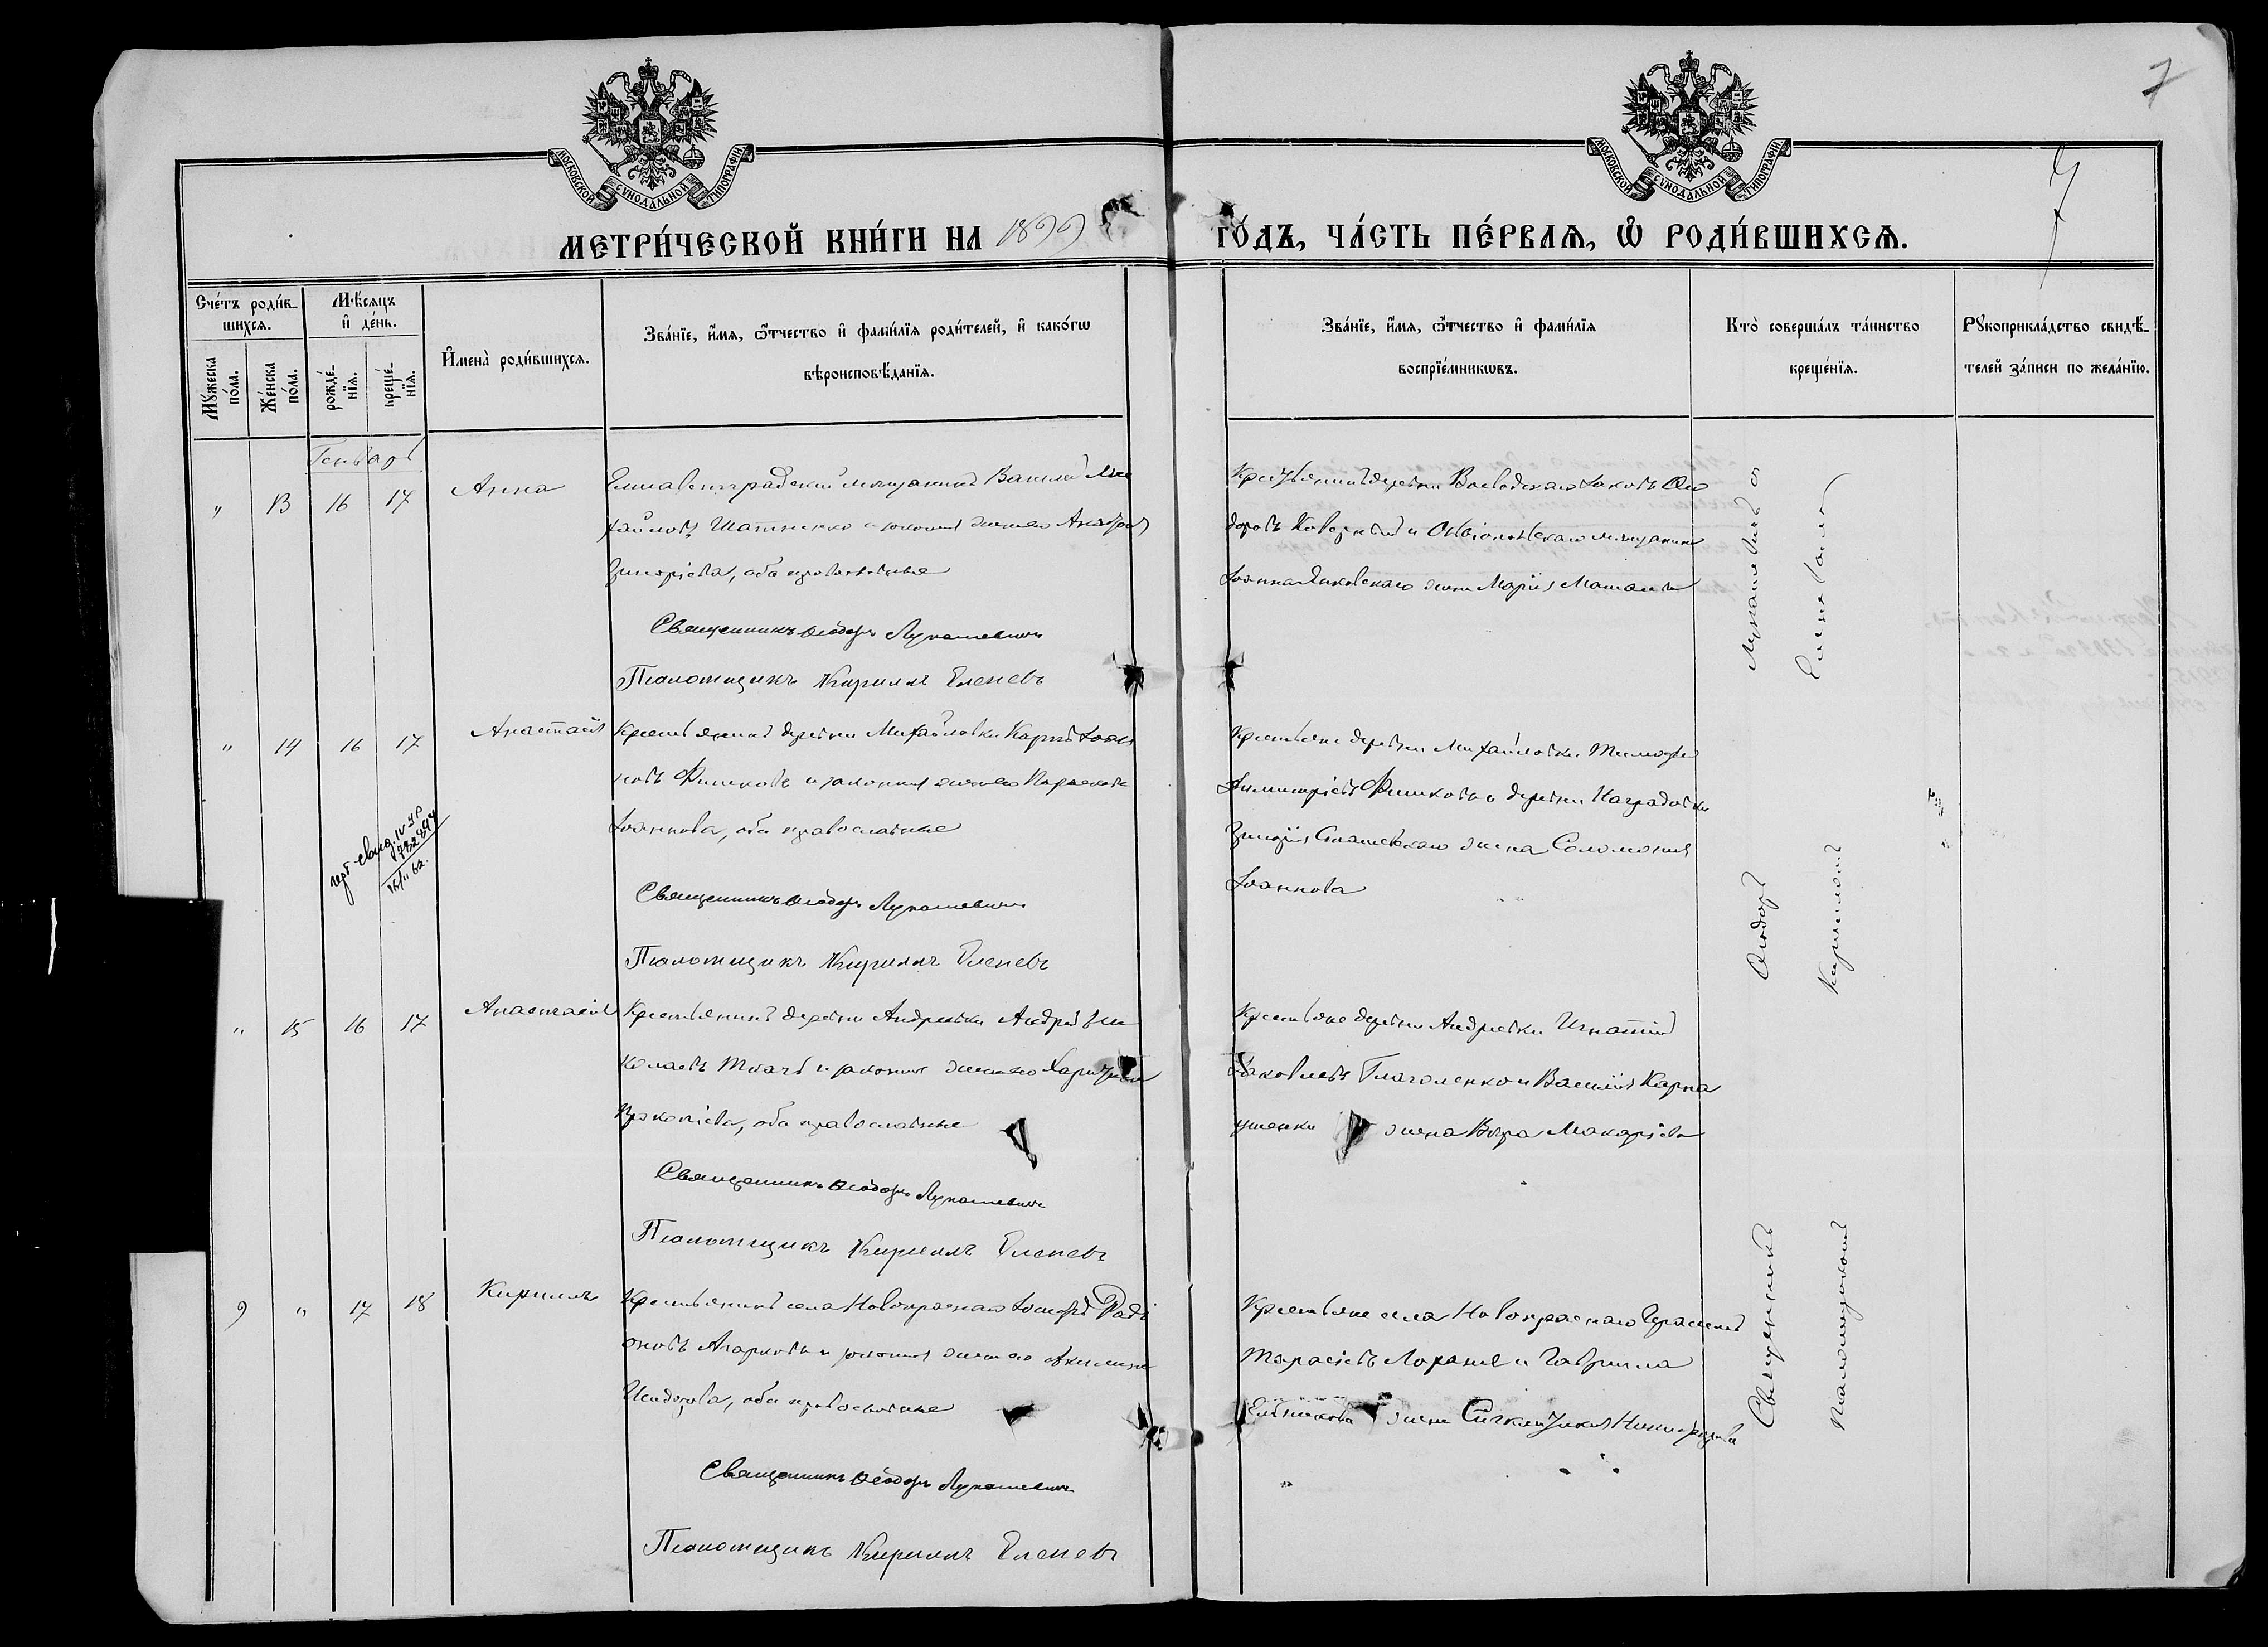 7
МОСКОВСКОЙ СѴНОДАЛЬНОЙ ТИПОГРАФІИ
МОСКОВСКОЙ СѴНОДАЛЬНОЙ ТИПОГРАФІИ
7
МЕТРИ́ЧЕСКОЙ КНИ́ГИ НА 1899 ГО́ДЪ, ЧА́СТЬ ПЕ́РВАЯ, Ѡ РОДИ́ВШИХСЯ.
Сче́тъ роди́в-
шихся.
Мꙋ́жеска по́ла.
Же́нска по́ла.
Мѣ́сяцъ
и де́нь.
рожде́-
нїя.
креще́-
нїя.
Имена̀ роди́вшихся.
Зва́нїе, и́мя, ѻ́тчество и фами́лїя роди́телей, и како́гѡ
вѣроисповѣ́данїя.
Зва́нїе, и́мя, ѻ́тчество и фами́лїя
воспрїе́мникѡвъ.
Кто̀ соверша́лъ та́инство
креще́нїя.
Рꙋкоприкла́дство свидѣ́-
телей за́писи по жела́нїю.
Генварь
" 13 16 17 Анна
Елисаветградский мещанинъ Василий Ми
хайловъ и законная жена его
Григорiева, оба православные
Священникъ Ѳеодоръ Лукашевичъ
Псаломщикъ Кириллъ Еленевъ
Крестьянинъ деревни Яковъ Ѳео
доровъ и мещанина
Іоанна жена Марія
" 14 16 17 Анастасія
Крестьянинъ деревни Михайловки Карпъ Іоан
новъ Фишковъ и законная жена его Параскева
Іоаннова, оба православные
Священникъ Ѳеодоръ Лукашевичъ
Псаломщикъ Кириллъ Еленевъ
Крестьяне деревни Михайловки Тимофей
Димитріевъ Фишковъ и деревни
жена Соломонія
Іоаннова
" 15 16 17 Анастасія
Крестьянинъ деревни Андреевки Андрей Ни
колаевъ Ткачъ и законная жена его Харитина
Прокопіева, оба православные
Священникъ Ѳеодоръ Лукашевичъ
Псаломщикъ Кириллъ Еленевъ
Крестьяне деревни Андреевки Игнатій
Яковлевъ Глаголенко и Василія Карна
ушенки жена Вѣра Макаріева
9 " 17 18 Кириллъ
Крестьянинъ села Новокраснаго Іосифъ Раді
оновъ Агарковъ и законная жена его Акилина
Исидорова, оба православные
Священникъ Ѳеодоръ Лукашевичъ
Псаломщикъ Кириллъ Еленевъ
Крестьяне села Новокраснаго Герасимъ
Тарасіевъ и Гавриила
жена Никифорова
Священникъ Ѳеодоръ Лукашевичъ съ
Псаломщикомъ Кирилломъ Еленевымъ